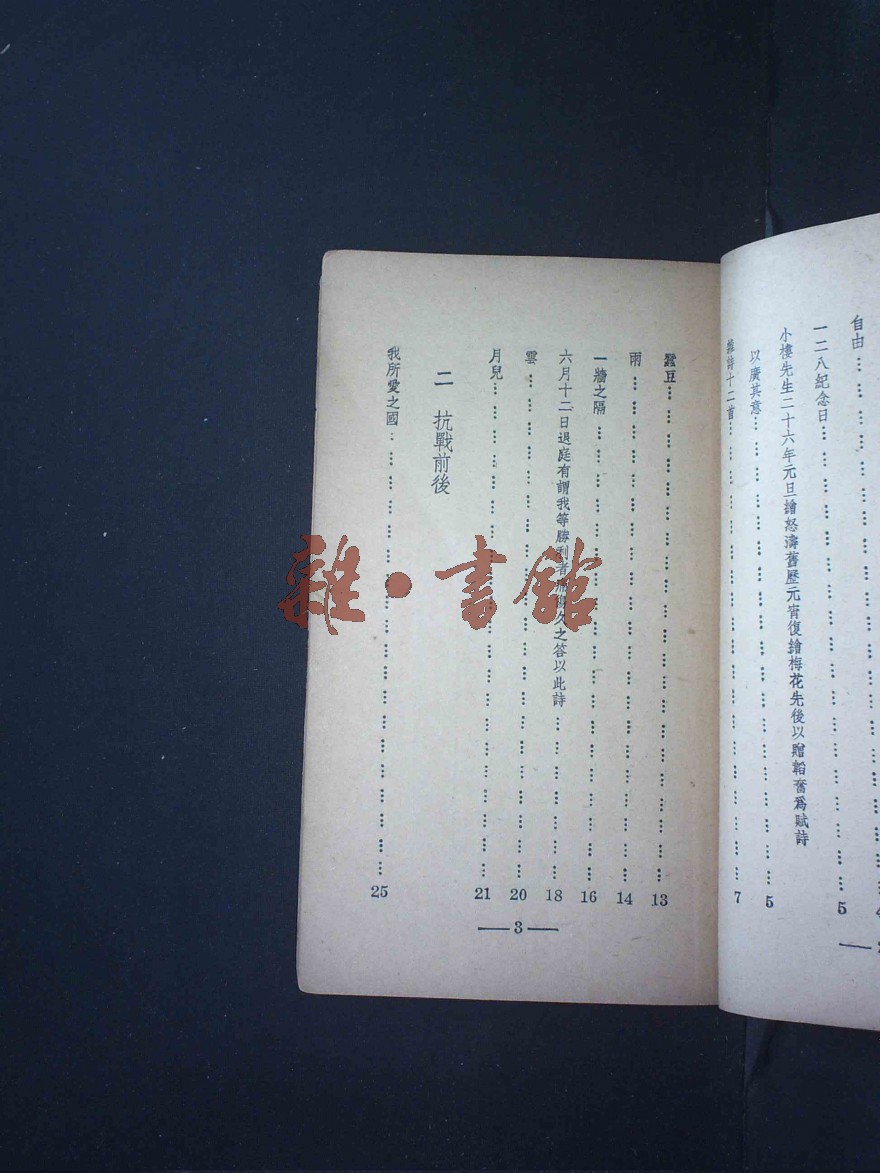 自由 … … … … 4
一二八紀念日 … … … … 5
小樓先生二十六年元旦繪怒濤舊歷元宵復繪梅花先後以贈韜奮爲賦詩
以廣其意 … … … … 5
雜詩十二首 … … … … 7
蠶豆 … … … … 13
雨 … … … … 14
一牆之隔 … … … … 16
六月十二日退庭有謂我等勝利者 久之答以此詩 … … … … 18
雲 … … … … 20
月兒 … … … … 21
二 抗戰前後
我所愛之國 … … … … 25
— 3 —
雜·書館